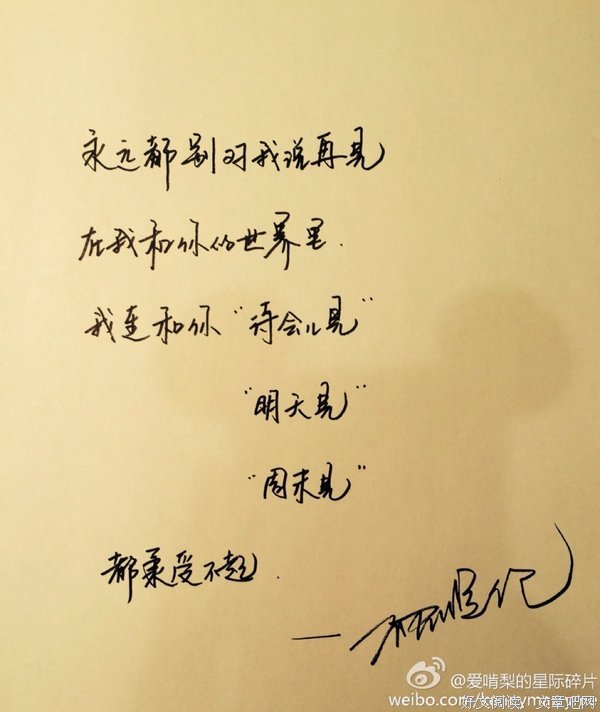 永远都别对我说再见
在我和你的世界里.
我连和你“待会儿见”
“明天见”
“周末见”
都承受不起.
@爱啃梨的星际碎片
好文阅读，文章吧网